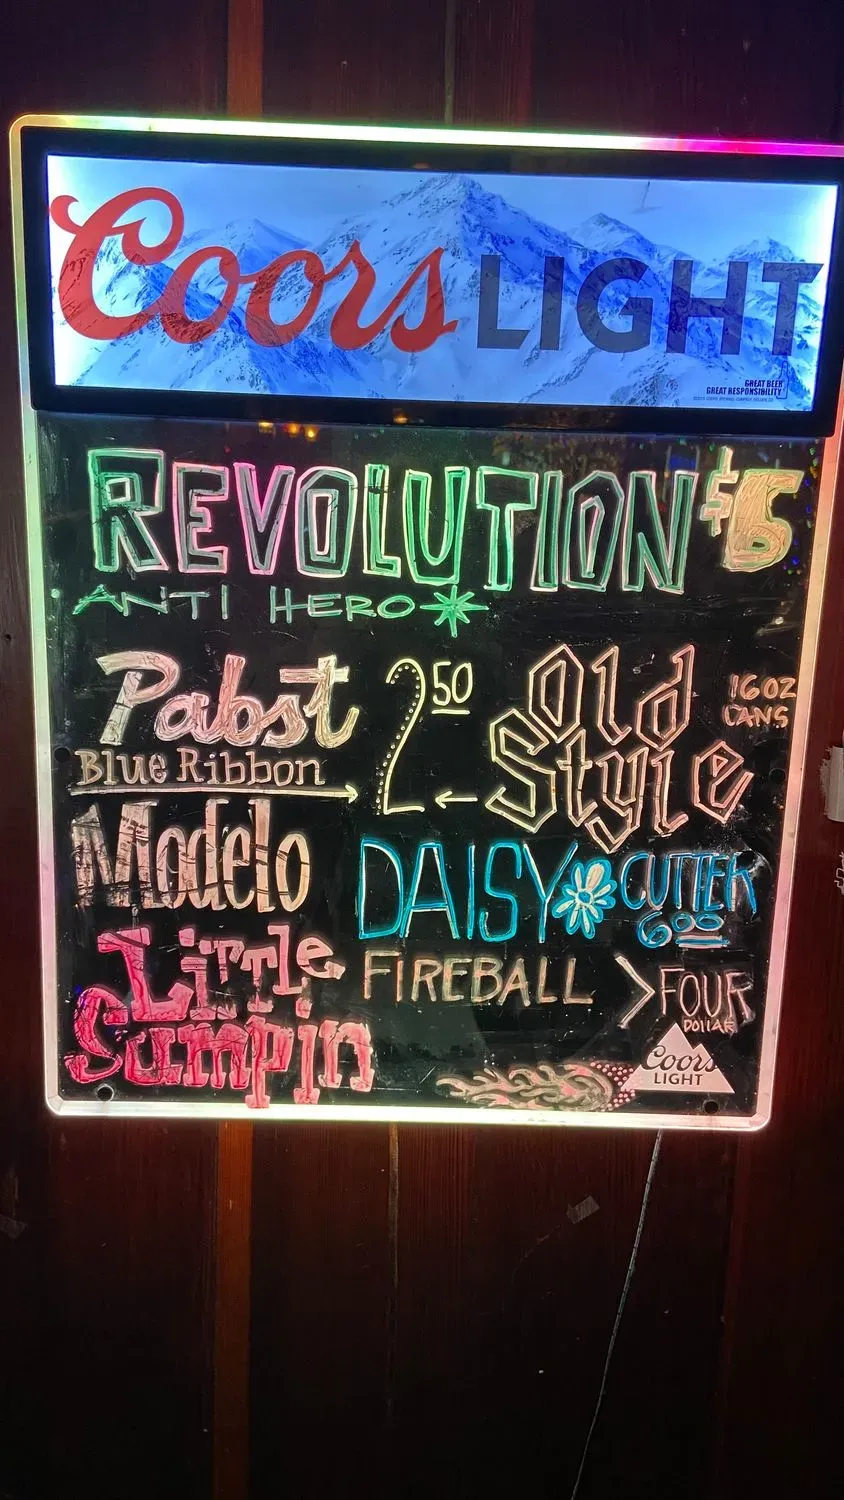 Coors LIGHT
GREAT BEER
GREAT RESPONSIBILITY
REVOLUTION $6
ANTI HERO
Pabst 2 50 Old 16 OZ CANS
Blue Ribbon Style
Modelo DAISY CUTTER
6 00
Little FIREBALL > FOUR
DOLLAR
Sumpin
Coors
LIGHT